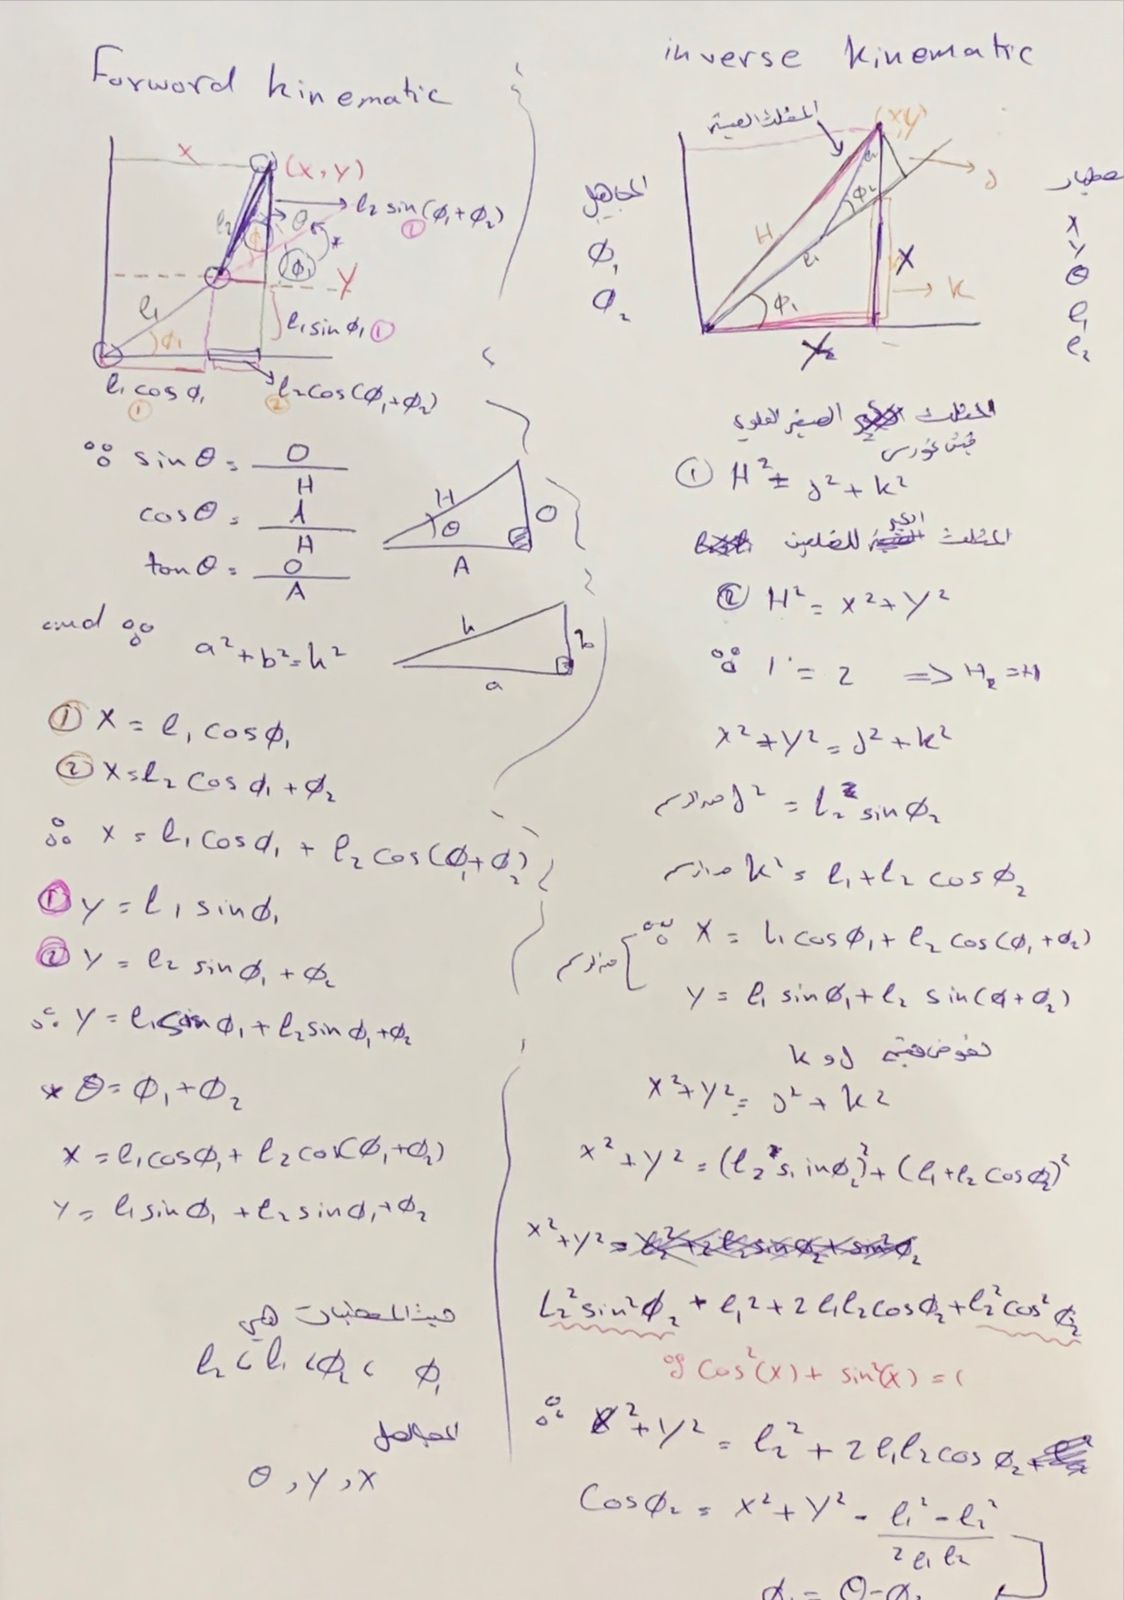 Forword kinematic
x
(x, y)
l2 sin(φ1+φ2)
②
l2
θ
φ1
y
l1
φ1
l1 sinφ1 ①
l1 cosφ1
①
l2 cos(φ1+φ2)
②
sinθ = O/H
cosθ = A/H
tanθ = O/A
H
θ
O
A
and
a²+b²=h²
h
b
a
① x = l1 cosφ1
② x = l2 cosφ1+φ2
x = l1 cosφ1 + l2 cos(φ1+φ2)
① y = l1 sinφ1
② y = l2 sinφ1+φ2
y = l1 sinφ1 + l2 sinφ1+φ2
* θ = φ1+φ2
x = l1 cosφ1 + l2 cos(φ1+φ2)
y = l1 sinφ1 + l2 sinφ1+φ2
حيث المعطيات هي
φ1 ، φ2 ، l1 ، l2
المجاهيل
θ, y, x
inverse kinematic
(x,y)
J
المجاهيل
φ1
φ2
H
l1
φ2
φ1
x
k
x
y
θ
l1
l2
المثلث الصغير العلوي
فيثاغورس
① H² = J²+k²
المثلث الكبير
② H² = x²+y²
1 = 2 => H = H
x²+y² = J²+k²
J² = L2 sinφ2
k² = l1+l2 cosφ2
x = l1 cosφ1 + l2 cos(φ1+φ2)
y = l1 sinφ1 + l2 sin(φ+φ2)
نعوض قيمة J و k
x²+y² = J²+k²
x²+y² = (l2 sinφ2)²+(l1+l2 cosφ2)²
x²+y² =
L2² sin²φ2 + l1²+2l1l2cosφ2+l2²cos²φ2
cos²(x)+ sin²(x) = 1
x²+y² = l2² + 2l1l2cosφ2+
Cosφ2 = x²+y² - l1²-l2²/2l1l2
φ1 = θ-φ2